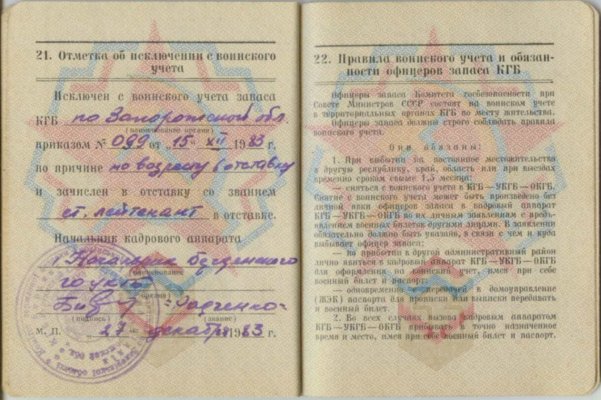 21. Отметка об исключении с воинского
учета
Исключен с воинского учета запаса
КГБ по Запорожской обл.
(наименование органа)
приказом № 099 от "15" XII 1983 г.
по причине по возрасту в отставку
и зачислен в отставку со званием
ст. лейтенант в отставке.
Начальник кадрового аппарата
Начальник
(подпись) (звание)
М. П. "27" декабря 1983 г.
22. Правила воинского учета и обязан-
ности офицеров запаса КГБ
Офицеры запаса Комитета госбезопасности при
Совете Министров СССР состоят на воинском учете
в территориальных органах КГБ по месту жительства.
Офицеры запаса должны строго соблюдать правила
воинского учета.
Они обязаны:
1. При выбытии на постоянное местожительство
в другую республику, край, область или при выездах
временно сроком свыше 1,5 месяца:
— сняться с воинского учета в КГБ—УКГБ—ОКГБ.
Снятие с воинского учета может быть произведено без
личной явки офицеров запаса в кадровый аппарат
КГБ—УКГБ—ОКГБ по их личным заявлениям с предъ-
явлением военных билетов другими лицами. В заявлении
обязательно должно быть указано, в связи с чем и куда
выбывает офицер запаса;
— по прибытии в другой административный район
лично явиться в кадровый аппарат КГБ—УКГБ—ОКГБ
для оформления на воинский учет, имея при себе
военный билет и паспорт.
— одновременно с передачей в домоуправление
(ЖЭК) паспорта для прописки и выписки передавать
и военный билет.
2. Во всех случаях вызова кадровым аппаратом
КГБ—УКГБ—ОКГБ прибывать в точно назначенное
время и место, имея при себе военный билет и паспорт.